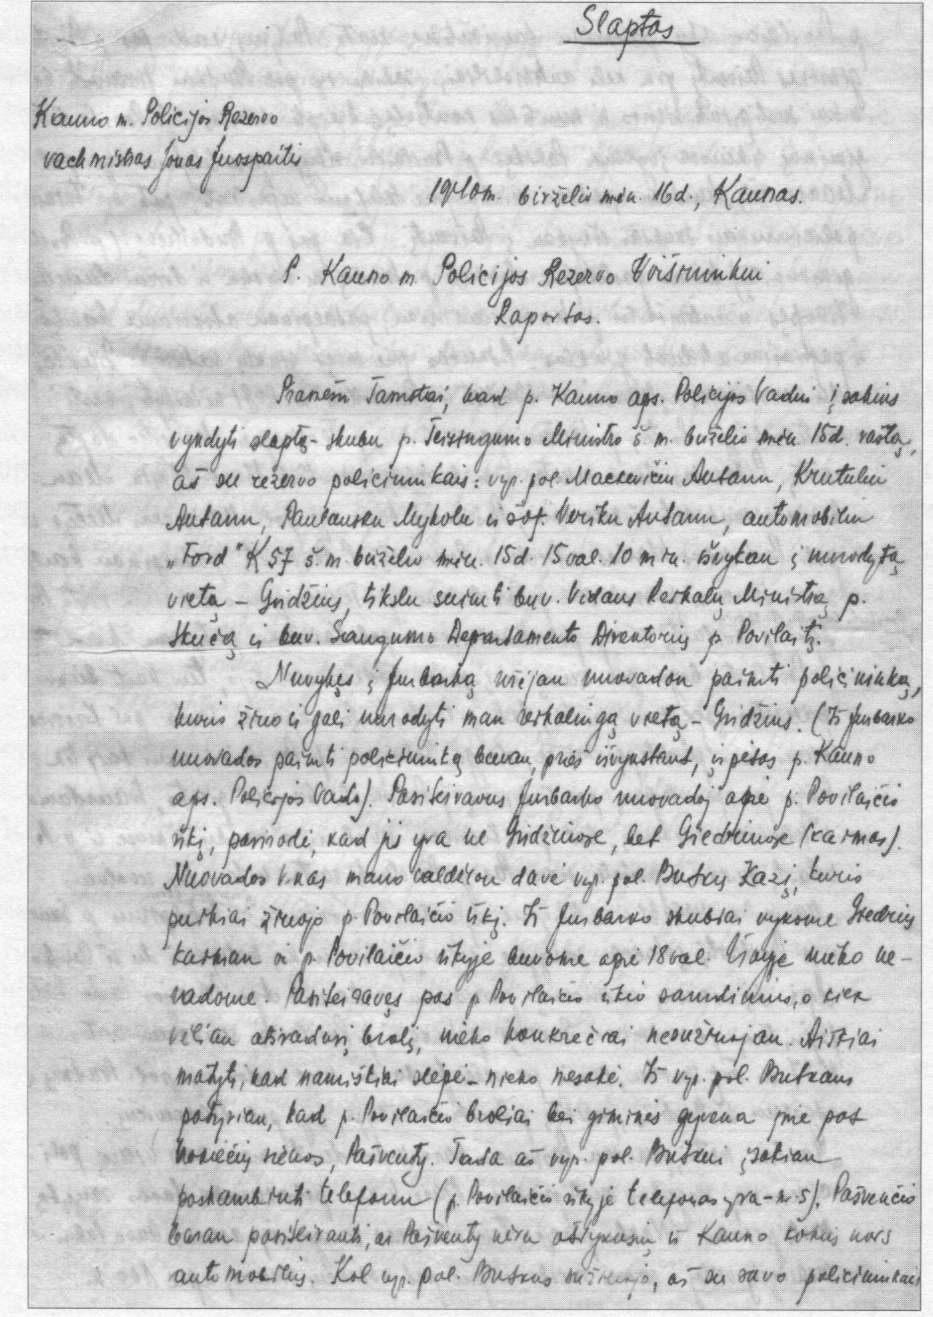 Slaptas
Kauno m. Policijos Rezervo
vachmistras Jonas Juospaitis
1940 m. birželio mėn. 16 d., Kaunas.
P. Kauno m. Policijos Rezervo Viršininkui
Raportas.
Pranešu Tamstai, kad p. Kauno aps. Policijos Vadui įsakius
vykdyti slaptą - skubu p. Teisingumo Ministro š. m. birželio mėn. 15 d. raštą,
aš su rezervo policininkais: vyr. pol. Mackevičiu Antanu, Krutuliu
Antanu, Paulausku Mykolu ir šof. Antanu, automobiliu
"Ford" K 57 š. m. birželio mėn. 15 d. 15 val. 10 min. išvykau į nurodytą
vietą - Gridžius, tikslu suimti buv. Vidaus Reikalų Ministrą p.
Skučą ir buv. Saugumo Departamento Direktorių p. Povilaitį.
Nuvykęs į Jurbarką užėjau nuovadon paimti policininką,
kuris žino ir gali nurodyti man reikalingą vietą - Gridžius. (Iš Jurbarko
nuovados paimti policininką buvau, prieš išvykstant, įspėtas p. Kauno
aps. Policijos Vado). Pasiteiravus Jurbarko nuovadoj apie p. Povilaičio
ūkį, pasirodė, kad jis yra ne Gridžiuose, bet Giedriuose (kaimas).
Nuovados V-kas mano valdžion davė vyr. pol. Butkų Kazį, kuris
puikiai žinojo p. Povilaičio ūkį. Iš Jurbarko skubiai vykome Giedrių
kaiman ir p. Povilaičio ūkyje buvome apie 18 val. Ūkyje nieko ne-
radome. Pasiteiravęs pas p. Povilaičio ūkio samdinius, o kiek
vėliau atsiradusį brolį, nieko konkrečiai nesužinojau. Aiškiai
matyti, kad namiškiai slepė - nieko nesakė. Iš vyr. pol. Butkaus
patyriau, kad p. Povilaičio broliai bei giminės gyvena prie pat
vokiečių sienos, Pašventy. Tada aš vyr. pol. Butkui įsakiau
paskambinti telefonu (p. Povilaičio ūkyje telefonas yra - nr 5). Pašvenčio
baran pasiteirauti, ar Pašventy nėra atvykusių iš Kauno kokių nors
automobilių. Kol vyr. pol. Butkus sužinojo, aš su savo policininkais